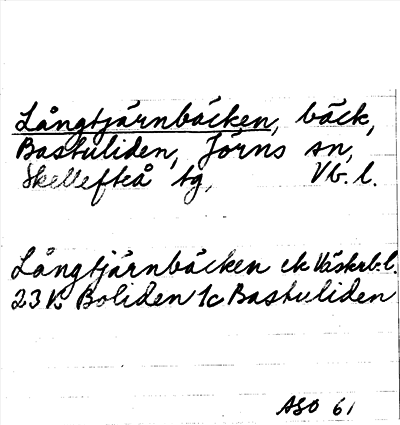 Långtjärnbäcken, bäck,
Bastuliden, Jörns sn,
Skellefteå tg, Vb. l.
Långtjärnbäcken ek Västerb.l.
23K Boliden 1c Bastuliden
ASO 61